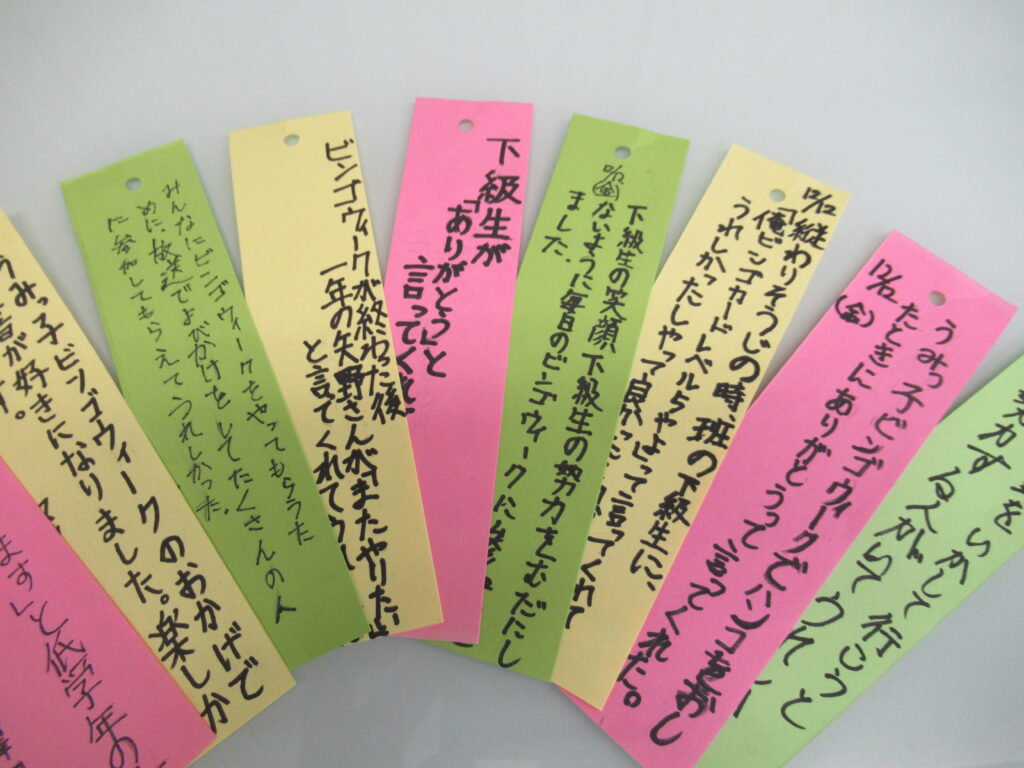 ます」と低学年の
うみっ子ビンゴウィークのおかげで
書が好きになりました。楽しか
す。
みんなにビンゴウィークをやってもらうた
めに、放送でよびかけをしてたくさんの人
に参加してもらえてうれしかった。
ビンゴウィークが終わった後
一年の矢野さんが「またやりたい
と言てくれてう
下級生が
「ありがとう」と
言ってくれ
12/12(金)
下級生の笑顔、下級生の努力をむだにし
ないように毎日のビンゴウィークに
ました。
12/12
縦わりそうじの時班の下級生に、
「俺ビンゴカードレベル5やよ」って言ってくれて
うれしかったしやって良かった
12/12(金)
うみっ子ビンゴウィークでハンコをおし
たときにありがとうって言ってくれた。
をいかして行こうと
する人がいてうれし